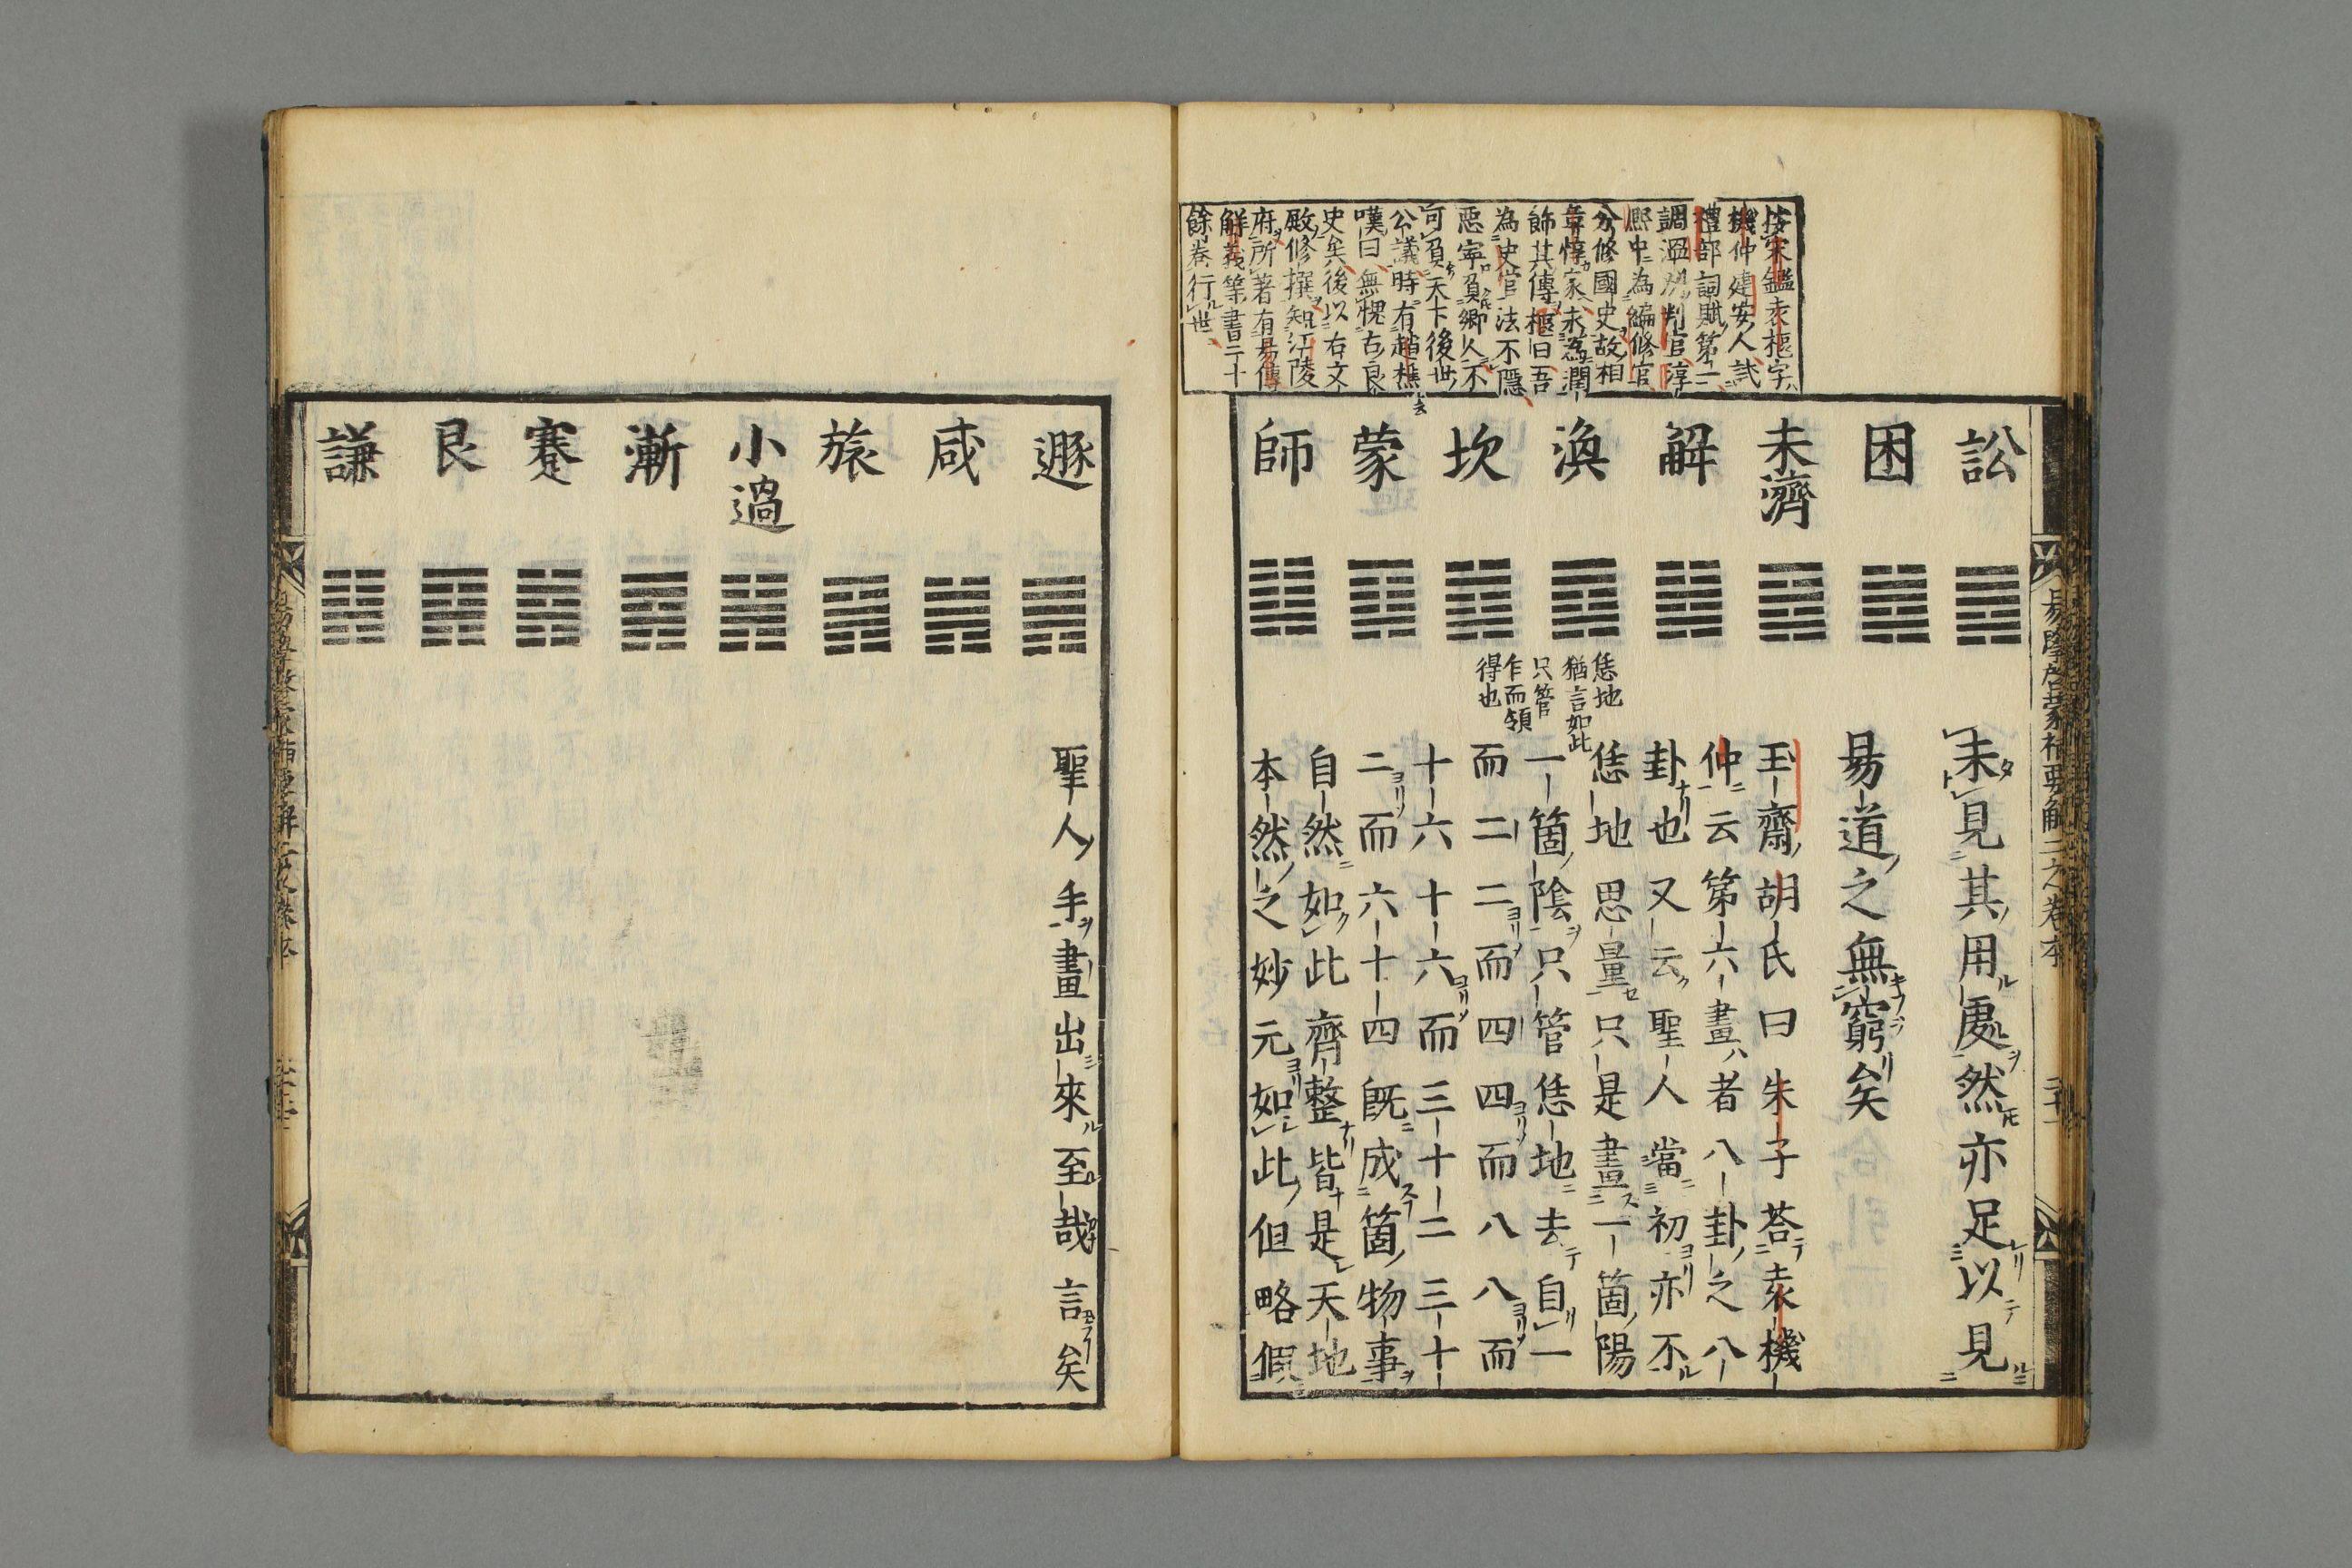 按宋鑑袁樞字
機仲建安人試
禮部詞賦第一
調溫州判官淳
熙中為編修官
分修國史故相
章惇家求為潤
飾其傳樞曰吾
為史官法不隱
惡寧負鄉人不
可負天下後世
公議時有趙樵
嘆曰無愧古良
史矣後以右文
殿修撰知江陵
府所著有易傳
解義等書二十
餘卷行世
訟
困
未濟
解
渙
坎
蒙
師
未見其用處然亦足以見
易道之無窮矣
玉齋胡氏曰朱子荅袁機
仲云第六畫者八卦之八
卦也又云聖人當初亦不
恁地思量只是畫一箇陽
一箇陰只管恁地去自一
而二二而四四而八八而
十六十六而三十二三十
二而六十四既成箇物事
自然如此齊整皆是天地
本然之妙元如此但略假
恁地
猶言如此
只管
乍而領
得也
易學啓蒙補要解二之卷本
遯
咸
旅
小過
漸
蹇
艮
謙
聖人手畫出來至哉言矣